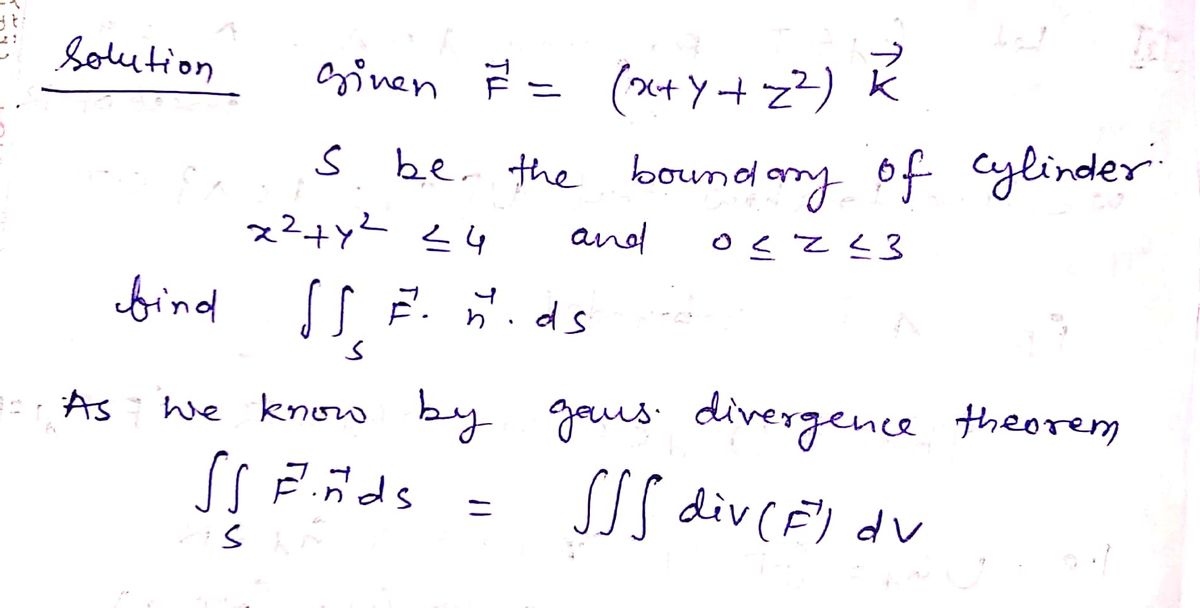 Solution Given F⃗ = (x+y+z²) k⃗
S be the boundary of cylinder
x²+y² ≤ 4 and 0 ≤ z ≤ 3
find ∬_S F⃗. n⃗. ds
As we know by gaus. divergence theorem
∬_S F⃗.n⃗ ds = ∭ div(F⃗) dv